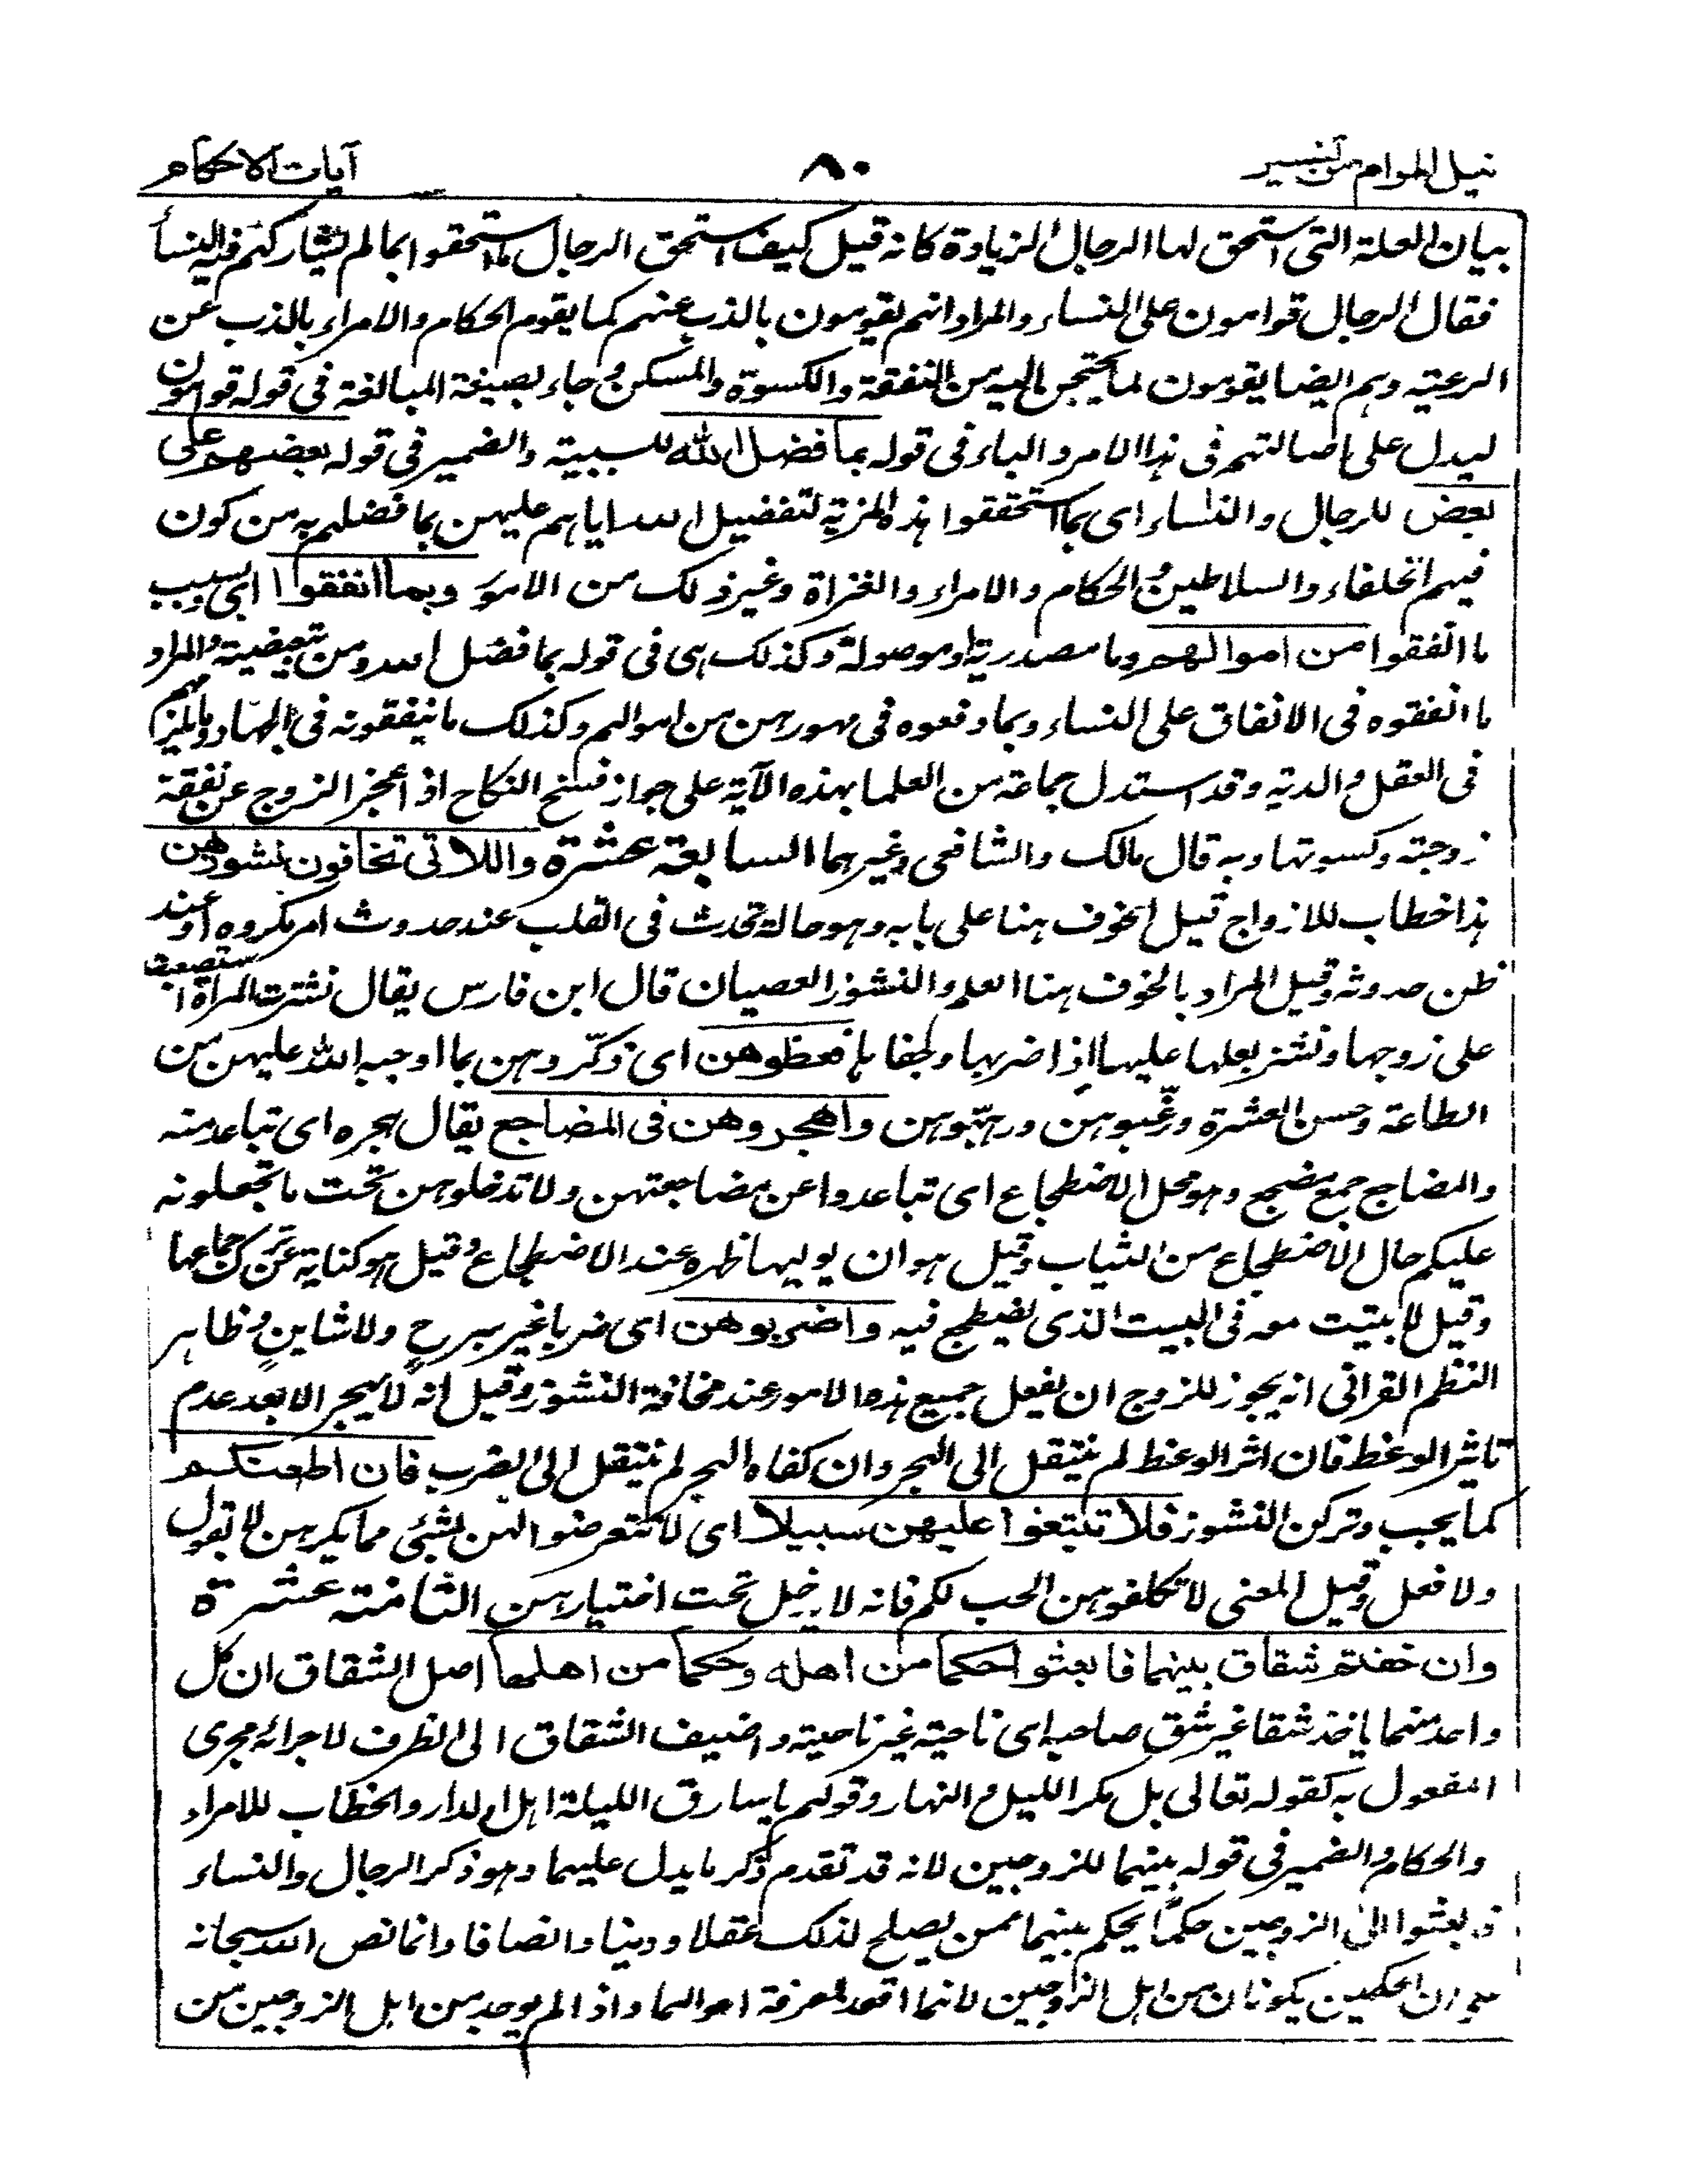 نيل المرام من تفسير
٨٠
آيات الاحكام
بيان العلة التى استحق لها الرجال الزيادة كانه قيل كيف استحق الرجال ما استحقوا بما لم تشاركهم فيه النسأ
فقال الرجال قوامون على النساء والمراد انهم يقومون بالذب عنهم كما يقوم الحكام والامراء بالذب عن
الرعية وهم ايضا يقومون لما يحتجن اليه من النفقة والكسوة والمسكن وجاء بصيغة المبالغة فى قوله قوامون
ليدل على اصالتهم فى هذا الامر والباء فى قوله بما فضل الله للسببية والضمير فى قوله بعضهم على
بعض للرجال والنساء اى بما استحققوا هذه المزية لتفضيل الله اياهم عليهن بما فضلهم به من كون
فيهم الخلفاء والسلاطين والحكام والامراء والغزاة وغير ذلك من الامور وبما انفقوا اى وبسبب
ما انفقوا من اموالهم وما مصدرية او موصولة وكذلك هى فى قوله بما فضل الله ومن تبعيضية والمراد
ما انفقوه فى الانفاق على النساء وبما دفعوه فى مهورهن من اموالهم وكذلك ما ينفقونه فى الجهاد وما يلزمهم
فى العقل والدية وقد استدل جماعة من العلما بهذه الآية على جواز فسخ النكاح اذا عجز الزوج عن نفقة
زوجته وكسوتها وبه قال مالك والشافعى وغيرهما السابعة عشرة واللاتى تخافون نشوزهن
هذا خطاب للازواج قيل الخوف هنا على بابه وهو حالة تحدث فى القلب عند حدوث امر مكروه أو عند
ظن حدوثه وقيل المراد بالخوف هنا العلم والنشوز العصيان قال ابن فارس يقال نشزت المرأة استصعبت
على زوجها ونشز بعلها عليها اذا ضربها وجفاها فعظوهن اى ذكّروهن بما اوجبه الله عليهن من
الطاعة وحسن العشرة ورغّبوهن ورهّبوهن واهجروهن فى المضاجع يقال هجره اى تباعد منه
والمضاجع جمع مضجع وهو محل الاضطجاع اى تباعدوا عن مضاجعتهن ولا تدخلوهن تحت ما تجعلونه
عليكم حال الاضطجاع من الثياب وقيل هو ان يوليها ظهره عند الاضطجاع وقيل هو كناية عن ترك جماعها
وقيل لا يبيت معه فى البيت الذى يضطجع فيه واضربوهن اى ضربا غير مبرح ولا شاين وظاهر
النظم القرانى انه يجوز للزوج ان يفعل جميع هذه الامور عند مخافة النشوز وقيل انه لا يهجر الا بعد عدم
تاثير الوعظ فان اثر الوعظ لم ينتقل الى الهجر وان كفاه الهجر لم ينتقل الى الضرب فان اطعنكم
كما يجب وتركن النشوز فلا تبتغوا عليهن سبيلا اى لا تتعرضوا لهن بشئ مما يكرهن لا بقول
ولا فعل وقيل المعنى لا تكلفوهن الحب لكم فانه لا يدخل تحت اختيارهن الثامنة عشرة
وان خفتم شقاق بينهما فابعثوا حكما من اهله وحكما من اهلها اصل الشقاق ان كل
واحد منهما ياخذ شقا غير شق صاحبه اى ناحية غير ناحيته واضيف الشقاق الى الظرف لاجرائه مجرى
المفعول به كقوله تعالى بل مكر الليل والنهار وقولهم يا سارق الليلة اهل الدار والخطاب للامراء
والحكام والضمير فى قوله بينهما للزوجين لانه قد تقدم ذكر ما يدل عليهما وهو ذكر الرجال والنساء
فابعثوا الى الزوجين حكمًا يحكم بينهما ممن يصلح لذلك عقلا ودينا وانصافا وانما نص الله سبحانه
على ان الحكمين يكونان من اهل الزوجين لانهما اقعد لمعرفة احوالهما واذا لم يوجد من اهل الزوجين من